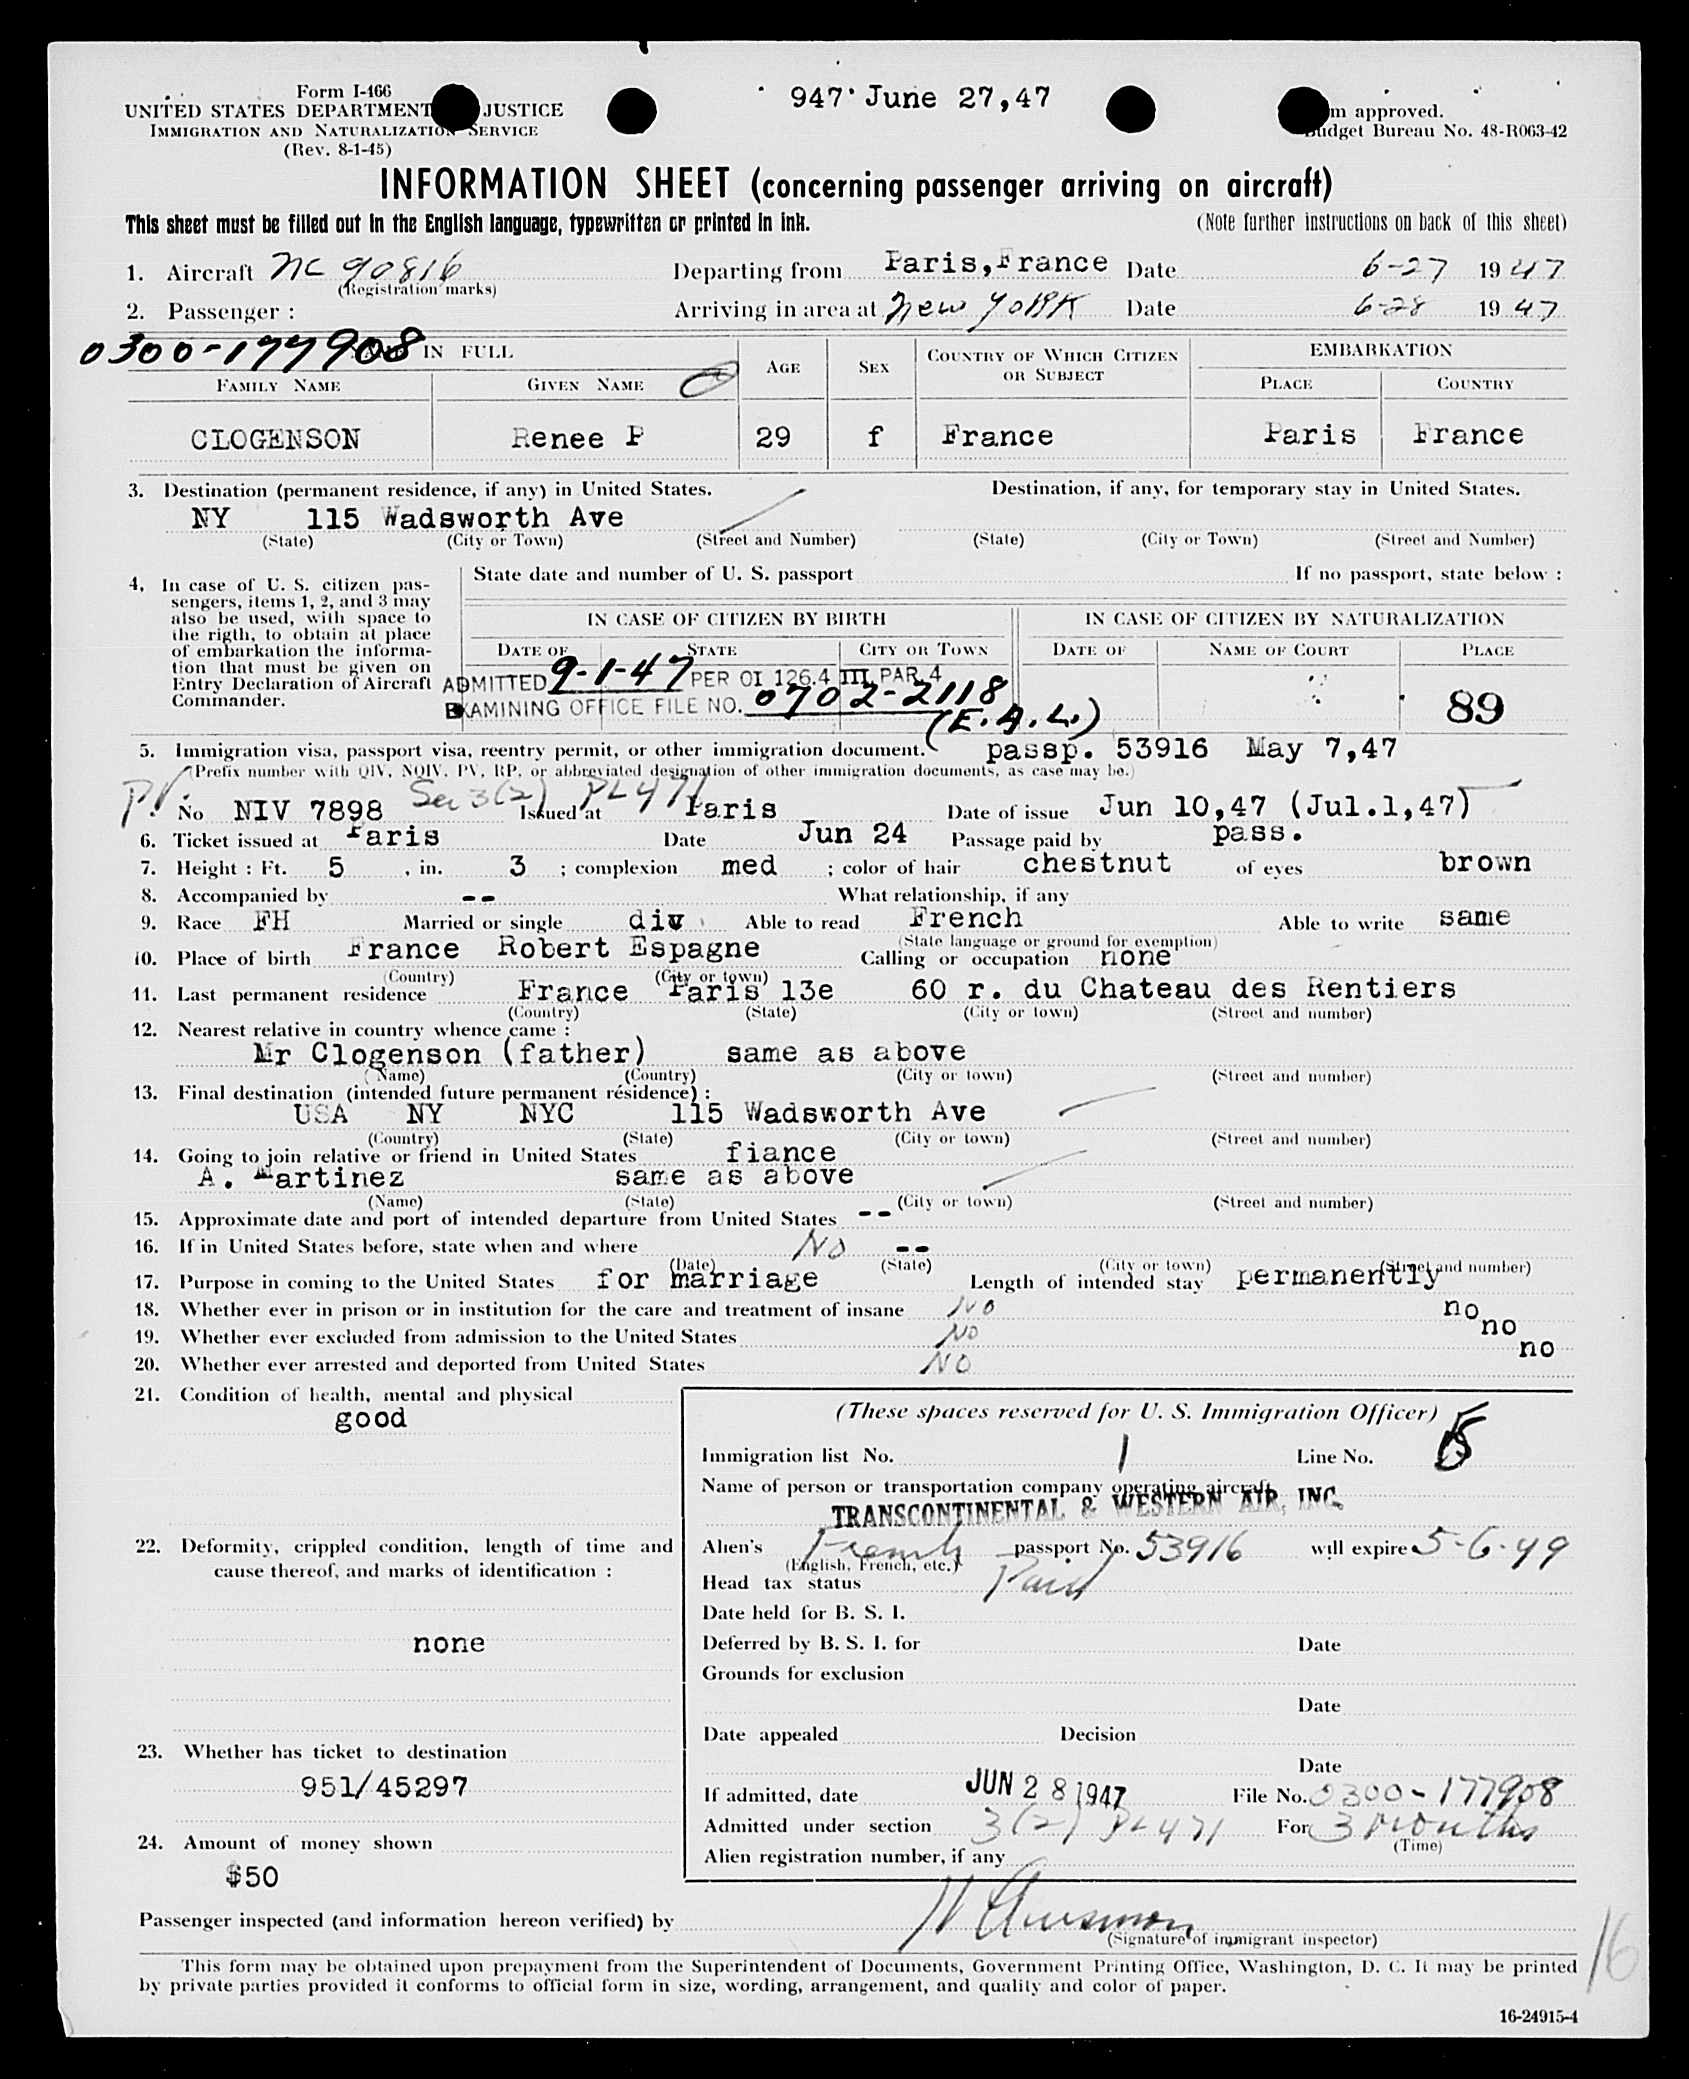 Form I-466
UNITED STATES DEPARTMENT JUSTICE
IMMIGRATION AND NATURALIZATION SERVICE
(Rev. 8-1-45)
947 June 27,47
m approved.
Budget Bureau No. 48-R063-42
INFORMATION SHEET (concerning passenger arriving on aircraft)
This sheet must be filled out in the English language, typewritten or printed in ink.
(Note further instructions on back of this sheet)
1. Aircraft NC 90816 Departing from Paris,France Date 6-27 1947
(Registration marks)
2. Passenger : Arriving in area at New York Date 6-28 1947
0300-177908
NAME IN FULL AGE SEX COUNTRY OF WHICH CITIZEN OR SUBJECT EMBARKATION
FAMILY NAME GIVEN NAME PLACE COUNTRY
CLOGENSON Renee P 29 f France Paris France
3. Destination (permanent residence, if any) in United States. Destination, if any, for temporary stay in United States.
NY 115 Wadsworth Ave
(State) (City or Town) (Street and Number) (State) (City or Town) (Street and Number)
4. In case of U. S. citizen pas-
sengers, items 1, 2, and 3 may
also be used, with space to
the rigth, to obtain at place
of embarkation the informa-
tion that must be given on
Entry Declaration of Aircraft
Commander.
State date and number of U. S. passport If no passport, state below :
IN CASE OF CITIZEN BY BIRTH IN CASE OF CITIZEN BY NATURALIZATION
DATE OF STATE CITY OR TOWN DATE OF NAME OF COURT PLACE
ADMITTED 9-1-47 PER OI 126.4 III, PAR. 4
EXAMINING OFFICE FILE NO. 0702-2118
(E.A.L.)
89
5. Immigration visa, passport visa, reentry permit, or other immigration document. passp. 53916 May 7,47
(Prefix number with QIV, NQIV, PV, RP, or abbreviated designation of other immigration documents, as case may be.)
PV. Sec 3(2) PL 471
No NIV 7898 Issued at Paris Date of issue Jun 10,47 (Jul.1,47)
6. Ticket issued at Paris Date Jun 24 Passage paid by pass.
7. Height : Ft. 5 , in. 3 ; complexion med ; color of hair chestnut of eyes brown
8. Accompanied by -- What relationship, if any
9. Race FH Married or single div Able to read French Able to write same
(State language or ground for exemption)
10. Place of birth France Robert Espagne Calling or occupation none
(Country) (City or town)
11. Last permanent residence France Paris 13e 60 r. du Chateau des Rentiers
(Country) (State) (City or town) (Street and number)
12. Nearest relative in country whence came :
Mr Clogenson (father) same as above
(Name) (Country) (City or town) (Street and number)
13. Final destination (intended future permanent résidence) :
USA NY NYC 115 Wadsworth Ave
(Country) (State) (City or town) (Street and number)
14. Going to join relative or friend in United States fiance
A. Martinez same as above
(Name) (State) (City or town) (Street and number)
15. Approximate date and port of intended departure from United States --
16. If in United States before, state when and where No --
(Date) (State) (City or town) (Street and number)
17. Purpose in coming to the United States for marriage Length of intended stay permanently
18. Whether ever in prison or in institution for the care and treatment of insane No no
19. Whether ever excluded from admission to the United States No no
20. Whether ever arrested and deported from United States No no
21. Condition of health, mental and physical
good
22. Deformity, crippled condition, length of time and
cause thereof, and marks of identification :
none
23. Whether has ticket to destination
951/45297
24. Amount of money shown
$50
(These spaces reserved for U. S. Immigration Officer)
Immigration list No. 1 Line No.
Name of person or transportation company operating aircraft
TRANSCONTINENTAL & WESTERN AIR, INC.
Alien's French passport No. 53916 will expire 5-6-49
(English, French, etc.)
Head tax status Paid
Date held for B. S. I.
Deferred by B. S. I. for Date
Grounds for exclusion
Date
Date appealed Decision
Date
If admitted, date JUN 28 1947 File No. 0300-177908
Admitted under section 3(2) PL 471 For 3 months
(Time)
Alien registration number, if any
Passenger inspected (and information hereon verified) by
(Signature of immigrant inspector)
16
This form may be obtained upon prepayment from the Superintendent of Documents, Government Printing Office, Washington, D. C. It may be printed
by private parties provided it conforms to official form in size, wording, arrangement, and quality and color of paper.
16-24915-4